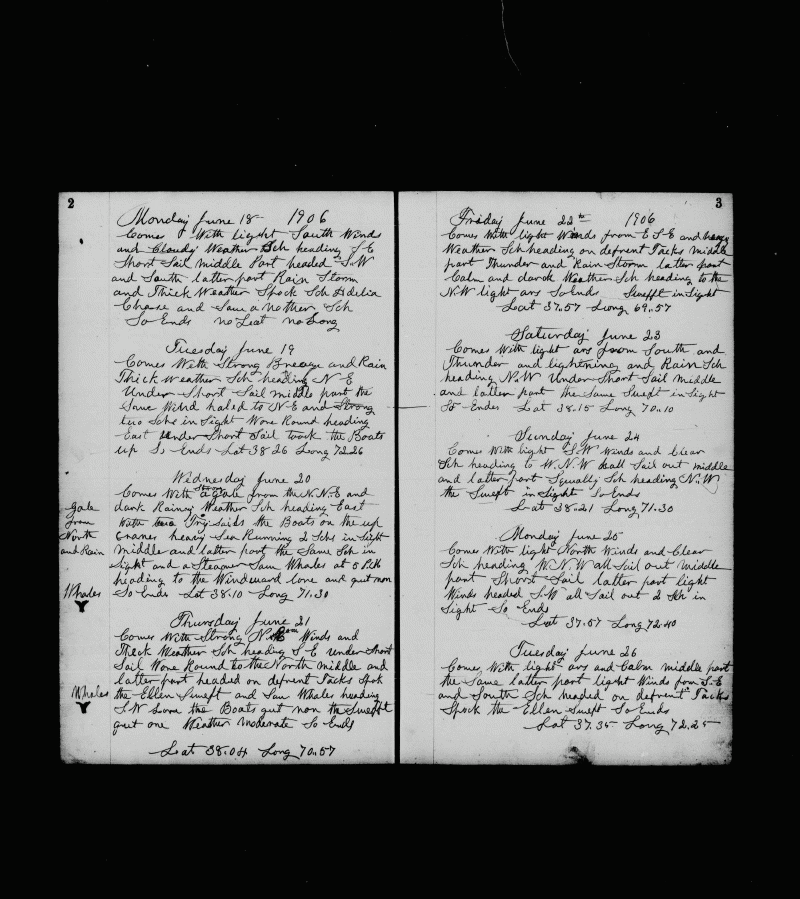 2
Monday June 18 1906
Comes With light South Winds
and Cloudy Weather Sch heading S E
Short Sail middle Part headed S.W
and South latter part Rain Storm
and Thick Weather Spock Sch Adelia
Chease and Saw a nother Sch
So Ends no Leat no Long
Tuesday June 19
Comes With Strong Breaze and Rain
Thick Weather Sch heading N-E
Under Short Sail middle part the
Same Wind haled to N-E and Strong
two Schs in Sight Wore Round heading
East under Short Sail toock the Boats
up So Ends Lat 38 26 Long 72.26
Wednesday June 20
Comes With a Strong Gale from the N.N.E and
dark Rainy Weather Sch heading East
With two Trysails the Boats on the up
Cranes heavy Sea Running 2 Schs in Sight
Middle and latter part the Same Sch in
Sight and a Steamer Saw Whales at 5 P.M
heading to the Windward lore and gut non
So Ends Lat 38.10 Long 71.30
Gale
from
North
and Rain
Whales
Thursday June 21
Comes With Strong N.E Winds and
Thick Weather Sch heading S E under Short
Sail Wore Round to the North middle and
latter part headed on defrent Tacks Spok
the Ellen Sweft and Saw Whales heading
S.W Lore the Boats gut non the Sweft
gut one Weather moderate So Ends
Whales
Leat 38.04 Long 70.57
3
Friday June 22 1906
Comes With light Winds from E S E and
Weather Sch heading on defrent Tacks middle
part Thunder and Rain Storm latter part
Calm and darck Weather Sch heading to the
N.W light ars So Ends Swefft in Sight
Leat 37.57 Long 69.57
Saturday June 23
Comes With light ars from South and
Thunder and lightening and Rain Sch
heading N.W Under Short Sail Middle
and latter part the Same Sweft in Sight
So Endes Lat 38.15 Long 70.10
Sunday June 24
Comes With light S.W Winds and Clear
Sch heading to W.N.W all Sail out middle
and latter part Squally Sch heading N.W
the Sweft in Sight So Ends
Lat 38.21 Long 71.30
Monday June 25
Comes With light North Winds and Clear
Sch heading W.N.W all Sail out Middle
part Short Sail latter part light
Winds headed S.W all Sail out 2 Sch in
Sight So Ends
Lat 37.57 Long 72.40
Tuesday June 26
Comes With light ars and Calm middle part
the Same latter part light Winds from S-E
and South Sch headed on defrent Tacks
Spock the Ellen Sweft So Ends
Lat 37.35 Long 72.25